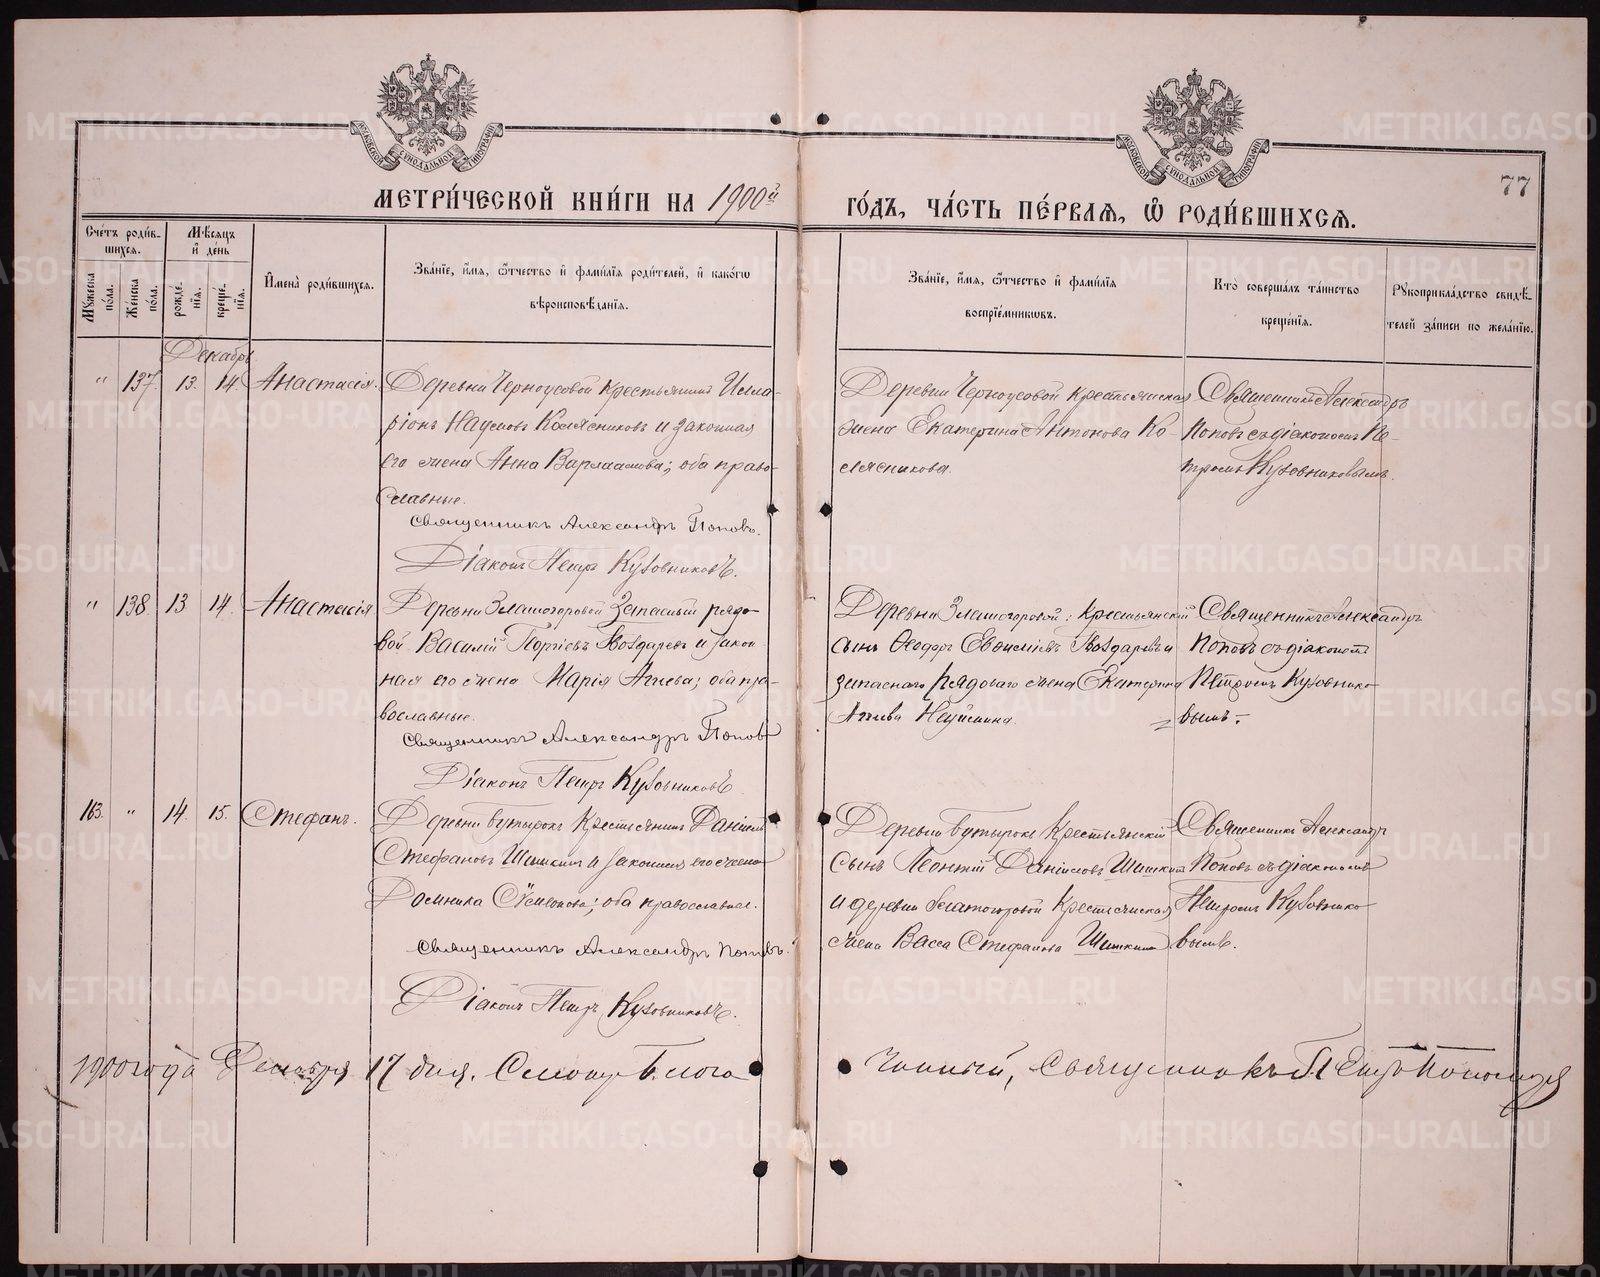 МЕТРИ́ЧЕСКОЙ КНИ́ГИ НА 1900й
ГО́ДЪ, ЧА́СТЬ ПЕ́РВАѦ, Ѡ҆ РОДИ́ВШИХСѦ.
77
Сче́тъ роди́в-
шихся.
Мѣ́сяцъ
и҆ де́нь
Му́жеска по́ла.
Же́нска по́ла.
рожде́-
нїя.
креще́-
нїя.
И҆мена̀ роди́вшихся.
Зва́нїе, и҆́мя, ѻ҆́тчество и҆ фами́лїя роди́телей, и҆ како́гѡ
вѣроисповѣ́данїя.
Зва́нїе, и҆́мя, ѻ҆́тчество и҆ фами́лїя
воспрїе́мникѡвъ.
Кто̀ соверша́лъ та́инство
креще́нїя.
Рꙋкоприкла́дство свидѣ́-
телей за́писи по жела́нїю.
Декабрь
" 137. 13. 14. Анастасія.
Деревни Черноусовой крестьянинъ Илла-
ріонъ Наумовъ Колясниковъ и законная
его жена Анна Варлаамова; оба право-
славные.
Священникъ Александръ Поповъ.
Діаконъ Петръ Кузовниковъ.
Деревни Черноусовой крестьянская
жена Екатерина Антонова Ко-
лясникова.
Священникъ Александръ
Поповъ съ діакономъ Пе-
тромъ Кузовниковымъ.
" 138. 13 14. Анастасія
Деревни Златогоровой запасный рядо-
вой Василій Гвоздаревъ и закон
ная его жена Марія; оба пра-
вославные.
Священникъ Александръ Поповъ
Діаконъ Петръ Кузовниковъ.
Деревни Златогоровой: крестьянскій
сынъ Ѳеодоръ Гвоздаревъ и
запаснаго рядоваго жена Екатерина
Священникъ Александръ
Поповъ съ діакономъ
Петромъ Кузовнико-
вымъ.
163. " 14. 15. Стефанъ.
Деревни Бутырокъ крестьянинъ Даніилъ
Стефановъ Шишкинъ и законная его жена
Домника; оба православные.
Священникъ Александръ Поповъ.
Діаконъ Петръ Кузовниковъ.
Деревни Бутырокъ крестьянскій
сынъ Леонтій Даніиловъ Шишкинъ
и деревни Златогоровой крестьянская
жена Васса Стефанова Шишкина
Священникъ Александръ
Поповъ съ діакономъ
Петромъ Кузовнико-
вымъ.
1900 года Декабря 17 дня. Смотр. Благо
чинный, Священникъ Петръ Пономаревъ
METRIKI.GASO-URAL.RU